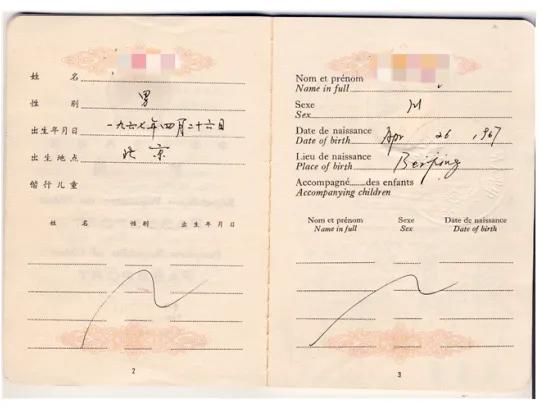 姓 名
性 别 男
出生年月日 一九六七年四月二十六日
出生地点 北 京
偕行儿童
姓 名 性 别 出 生 年 月 日
2
Nom et prénom
Name in full
Sexe M
Sex
Date de naissance Apr 26, 1967
Date of birth
Lieu de naissance Beijing
Place of birth
Accompagné........des enfants
Accompanying children
Nom et prénom Sexe Date de naissance
Name in full Sex Date of birth
3